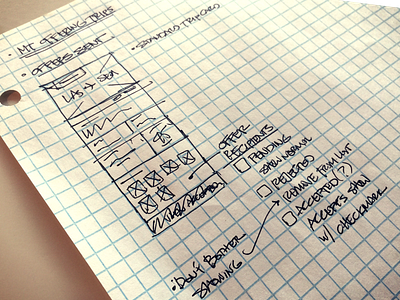 • MY OFFERING TRIPS
• OFFERS SENT
• STANDARD TRIP CARD
LAS → SEA
OFFER
RECIPIENTS
PENDING
SHOW NORMAL
REJECTED
REMOVE FROM LIST
ACCEPTED (?)
ACCEPTS SHOW
W/ CHECKMARK
• DON'T BOTHER
SHOWING